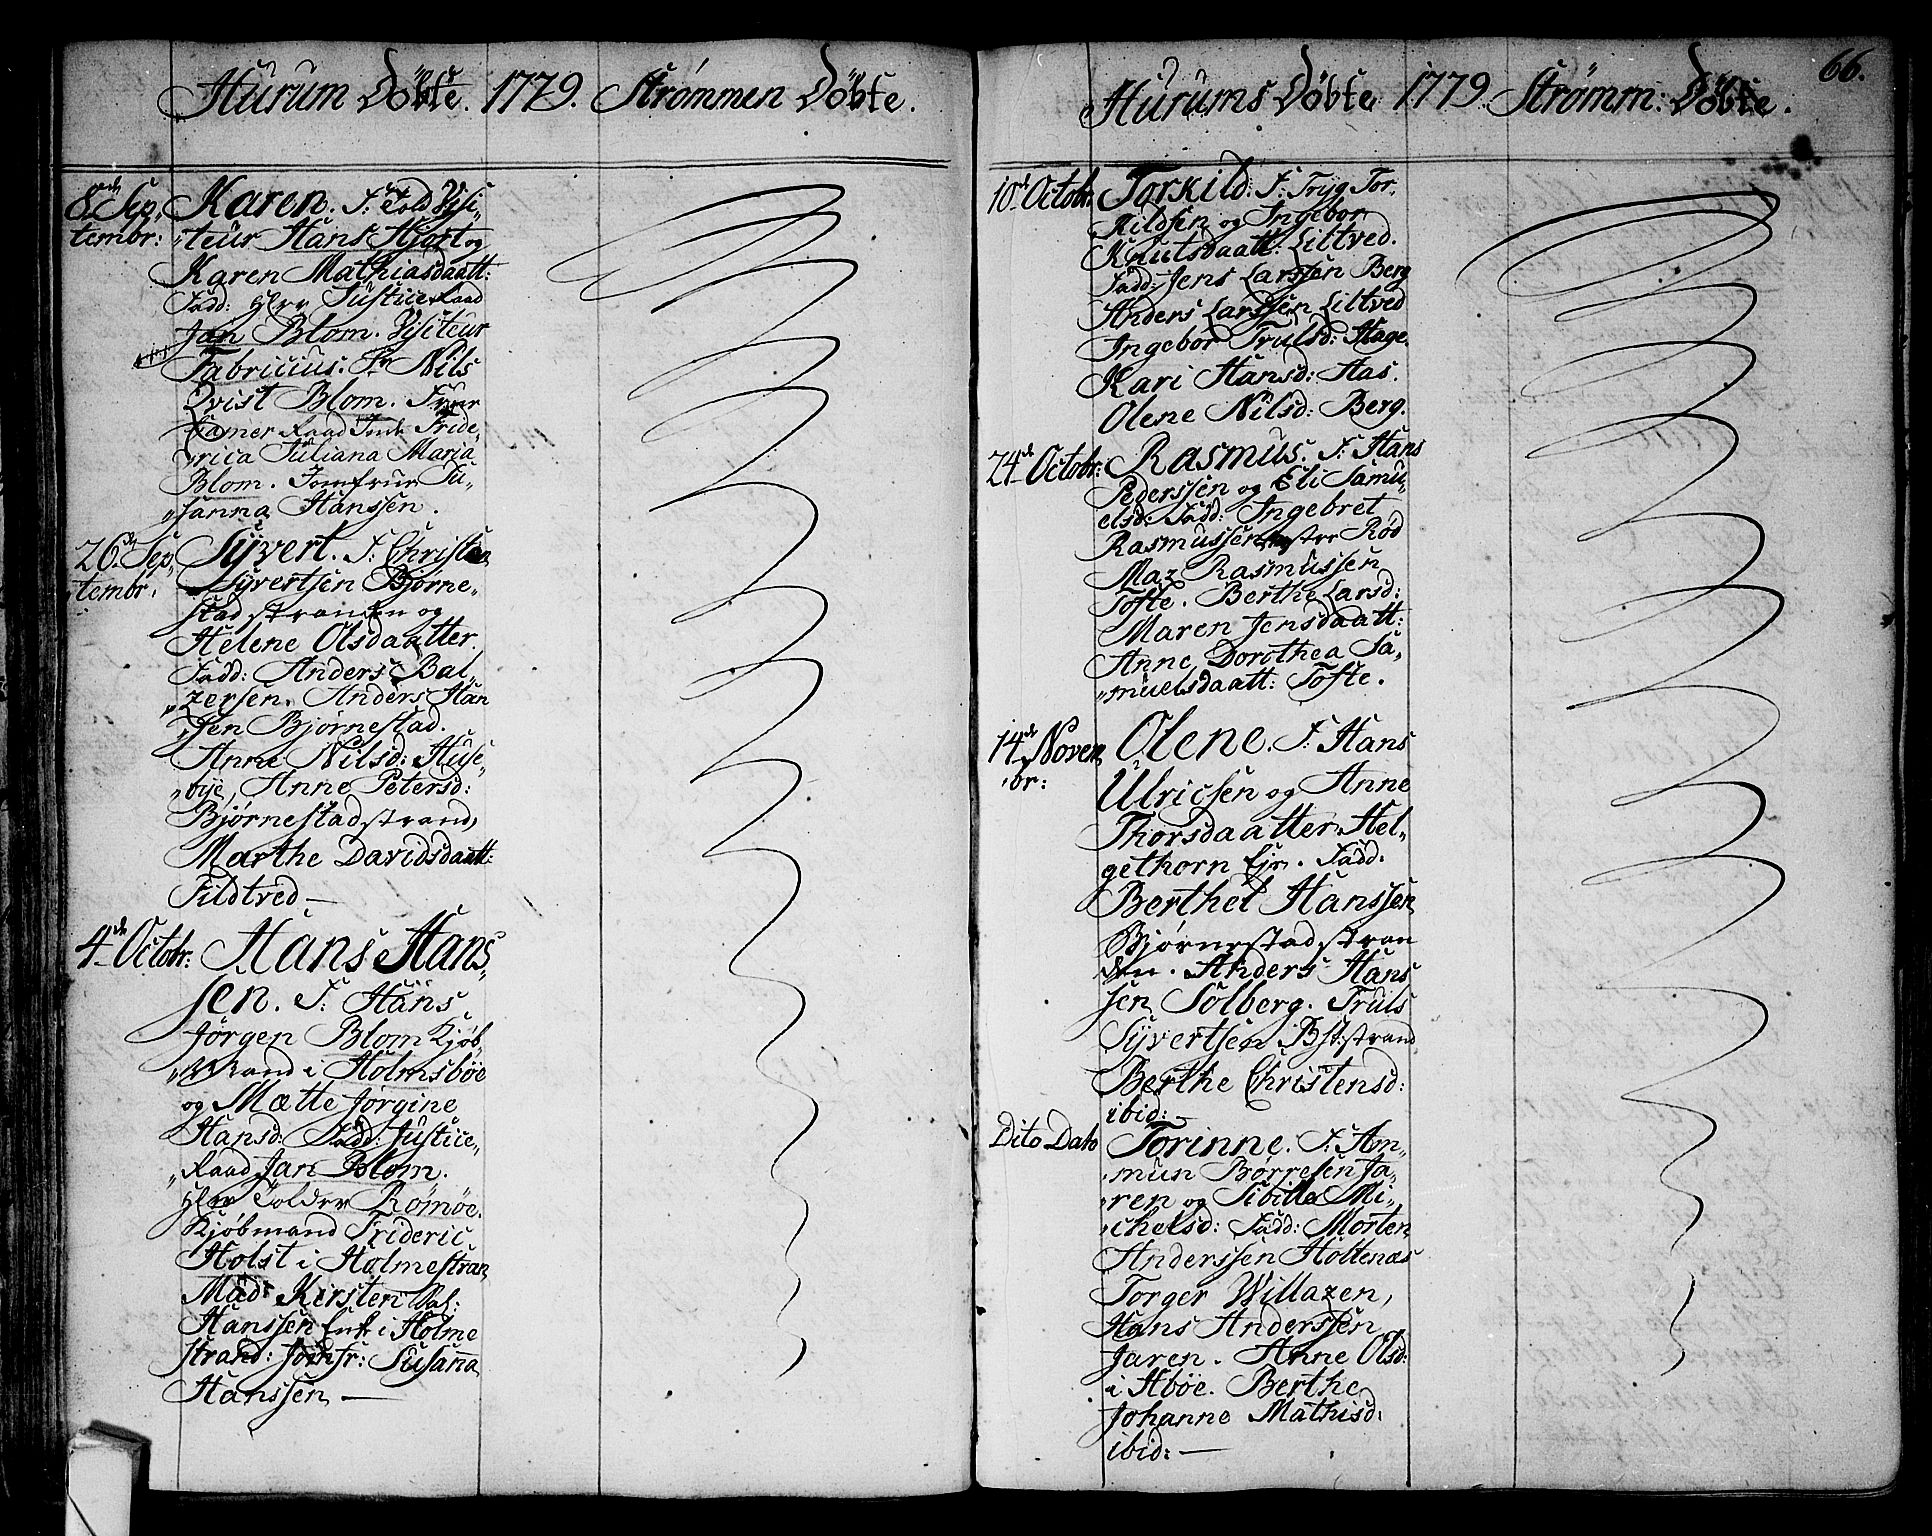 Hurum Döbte. 1779. Strømmen Döbte.
8de Sep,
tembr:
Karen. F: Told Visi,
teur Hans Hjort og
Karen Mathiasdaatt:
Fadd: Herr Justice Raad
Jan Blom. Visiteur
Fabricius. Sr Nils
Qvist Blom. Frue
Kamer Raad Fride,
rica Juliana Maria
Blom. Jomfrue Su,
sanna Hanssen.
26de Sep,
tembr.
Syvert. F: Christen
Syvertsen Bjørne,
stad stranden og
Helene Olsdaatter.
Fadd: Anders Bal,
zersen. Anders Han
sen Bjørnestad.
Anne Nilsd: Huse,
bye, Anne Petersd:
Bjørnestad strand,
Marthe Davidsdaatt:
Fildtved —
4de Octobr:
Hans Hans,
sen. F: Hans
Jørgen Blom Kjøb,
Mand i Holmsböe
og Mætte Jørgine
Hansd: Fadd: Justice,
Raad Jan Blom.
Herr Tolder Römöe.
Kjøbmand Frideric
Holst i Holmestran
Mad: Kirsten Sal:
Hanssen Enke i Holme
strand: Jomfr: Susanna
Hanssen —
66.
Hurums Döbte 1779 Strömm: Döbte.
10de Octobr:
Torkild: F: Tryg Tor,
Kildsen og Ingebor
Knutsdaatt: Liltved.
Fadd: Jens Larssen Berg
Anders Larssen Liltved
Ingebor Trulsd: Hage.
Kari Hansd: Has.
Olene Nilsd: Berg.
24de Octobr:
Rasmus. F: Hans
Pederssen og Eli Samu,
elsd: Fadd: Ingebret
Rasmussen Rød
Maz Rasmussen
Tofte. Berthe Larsd:
Maren Jensdaatt:
Anne Dorothea Sa,
muelsdaatt: Tofte.
14de Novem,
br:
Olene. F: Hans
Ulricsen og Anne
Thorsdaatter Hel,
gethorn Ejr. Fadd:
Berthel Hanssen
Bjørnestad stran
den. Anders Hans
sen Solberg. Truls
Syvertsen Bst: strand
Berthe Christensd:
ibid: —
Dito Dato
Torinne. F: Am,
mun Børresen Ja,
ren og Sibille Mi,
chelsd: Fadd: Morten
Anderssen Holtenæs
Torger Willazen,
Hans Anderssen
Jaren. Anne Olsd:
i Hböe. Berthe
Johanne Mathisd:
ibid: —